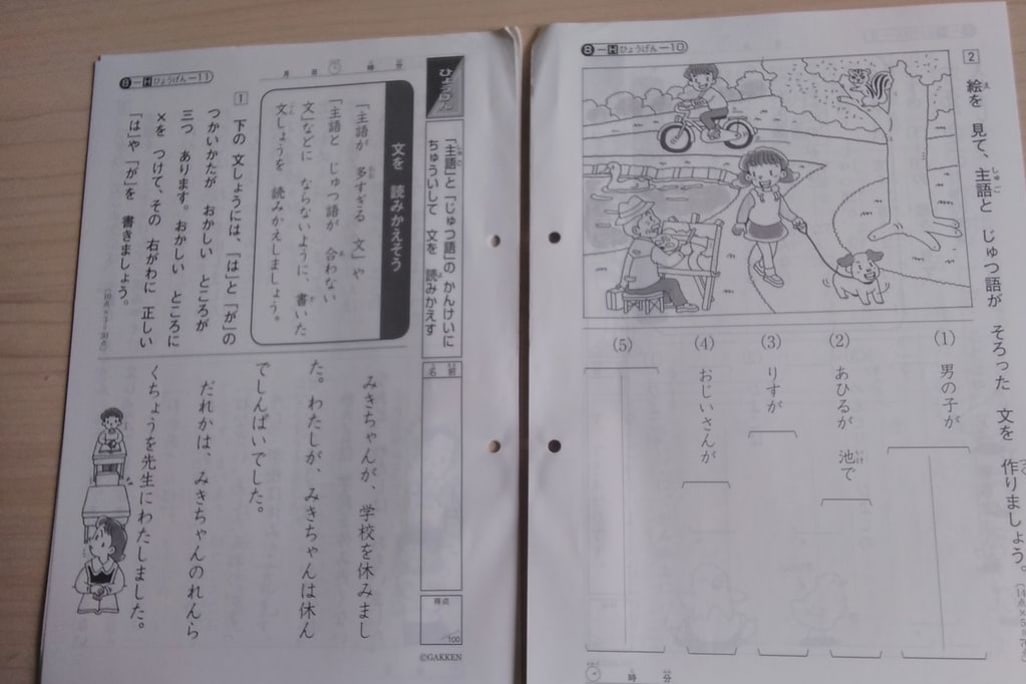 8−Hひょうげん−10
2 絵を 見て、主語と じゅつ語が そろった 文を 作りましょう。
(1) 男の子が
(2) あひるが 池で
(3) りすが
(4) おじいさんが
(5)
時 分
8−Hひょうげん−11
月 日 時 分
「主語」と「じゅつ語」の かんけいに
ちゅういして 文を 読みかえす
名前
得点
100
©GAKKEN
文を 読みかえそう
「主語が 多すぎる 文」や
「主語と じゅつ語が 合わない
文」などに ならないように、書いた
文しょうを 読みかえしましょう。
1 下の 文しょうには、「は」と 「が」の
つかいかたが おかしい ところが
三つ あります。おかしい ところに
×を つけて、その 右がわに 正しい
「は」や 「が」を 書きましょう。
みきちゃんが、学校を休みまし
た。わたしが、みきちゃんは休ん
でしんぱいでした。
だれかは、みきちゃんのれんら
くちょうを先生にわたしました。